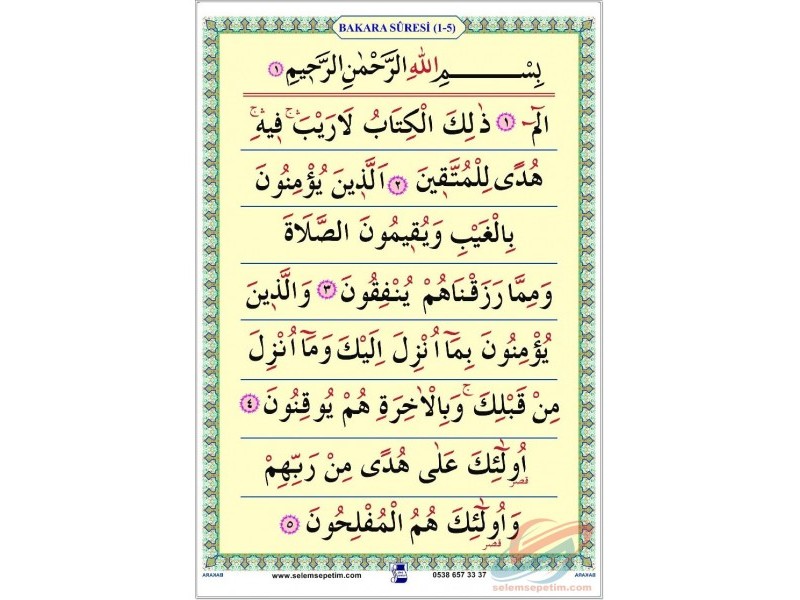 BAKARA SÛRESİ (1-5)
بِسْـــــــــمِ اللهِ الرَّحْمٰنِ الرَّح۪يمِ ١
الٓمٓ ١ ذٰلِكَ الْكِتَابُ لَا رَيْبَۚۛ ف۪يهِۚۛ
هُدًى لِلْمُتَّق۪ينَ ٢ اَلَّذ۪ينَ يُؤْمِنُونَ
بِالْغَيْبِ وَيُق۪يمُونَ الصَّلَاةَ
وَمِمَّا رَزَقْنَاهُمْ يُنْفِقُونَ ٣ وَالَّذ۪ينَ
يُؤْمِنُونَ بِمَٓا اُنْزِلَ اِلَيْكَ وَمَٓا اُنْزِلَ
مِنْ قَبْلِكَۚ وَبِالْاٰخِرَةِ هُمْ يُوقِنُونَ ٤
اُو۬لٰٓئِكَ عَلٰى هُدًى مِنْ رَبِّهِمْ
قصر
وَاُو۬لٰٓئِكَ هُمُ الْمُفْلِحُونَ ٥
قصر
BAKARA
www.selemsepetim.com
0538 657 33 37
BAKARA
selemsepetim.com